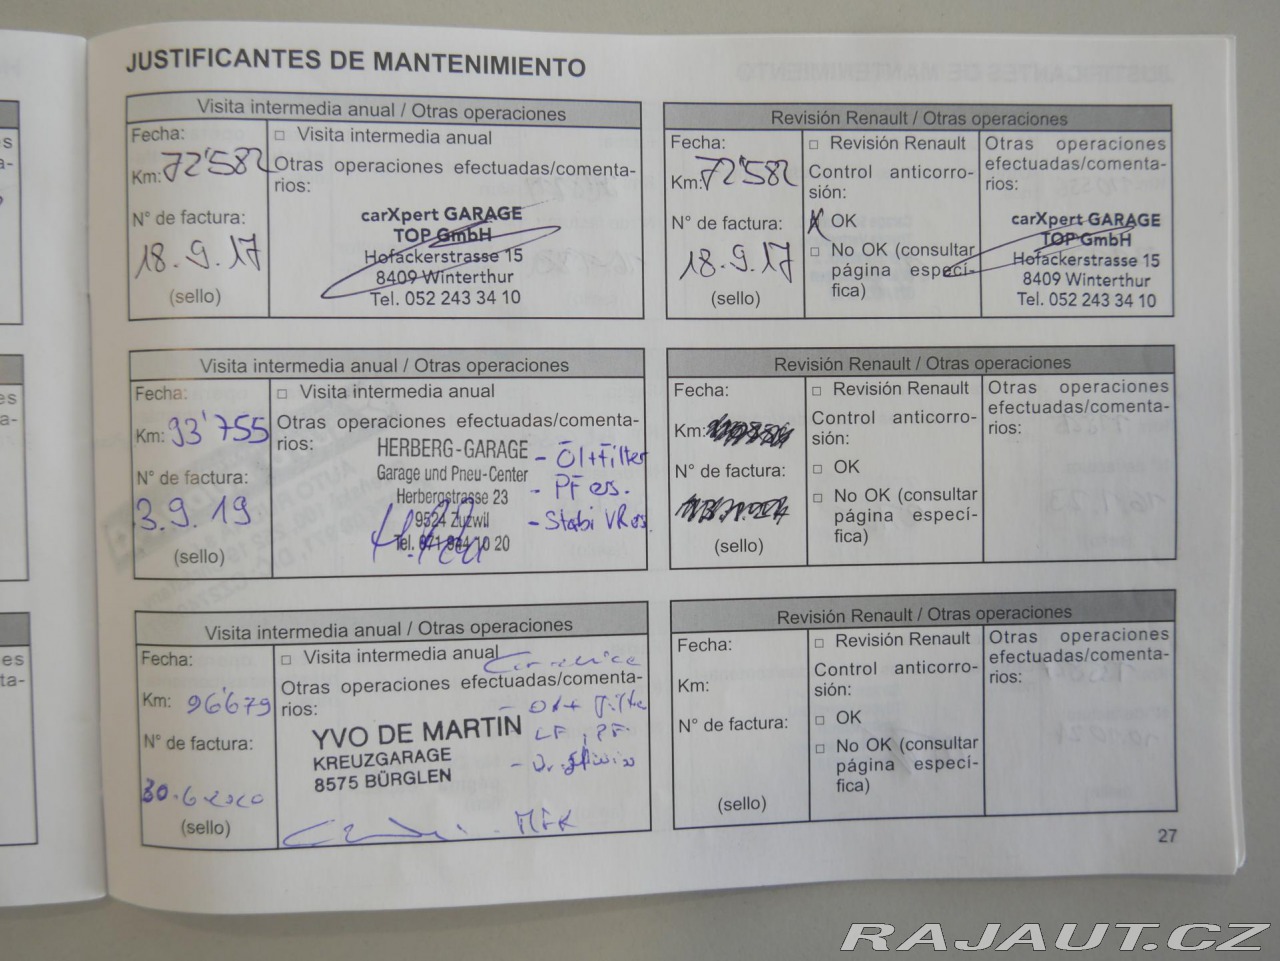 JUSTIFICANTES DE MANTENIMIENTO
Visita intermedia anual / Otras operaciones
Fecha:
Km: 72'582
N° de factura:
18.9.17
(sello)
□ Visita intermedia anual
Otras operaciones efectuadas/comenta-
rios:
carXpert GARAGE
TOP GmbH
Hofackerstrasse 15
8409 Winterthur
Tel. 052 243 34 10
Revisión Renault / Otras operaciones
Fecha:
Km: 72'582
N° de factura:
18.9.17
(sello)
□ Revisión Renault
Control anticorro-
sión:
X OK
□ No OK (consultar
página especí-
fica)
Otras operaciones
efectuadas/comenta-
rios:
carXpert GARAGE
TOP GmbH
Hofackerstrasse 15
8409 Winterthur
Tel. 052 243 34 10
Visita intermedia anual / Otras operaciones
Fecha:
Km: 93'755
N° de factura:
3.9.19
(sello)
□ Visita intermedia anual
Otras operaciones efectuadas/comenta-
rios:
HERBERG-GARAGE
Garage und Pneu-Center
Herbergstrasse 23
9524 Zuzwil
Tel. 071 944 10 20
- Öl+Filter
- PF ers.
- Stabi VR ers.
Revisión Renault / Otras operaciones
Fecha:
Km:
N° de factura:
(sello)
□ Revisión Renault
Control anticorro-
sión:
□ OK
□ No OK (consultar
página especí-
fica)
Otras operaciones
efectuadas/comenta-
rios:
Visita intermedia anual / Otras operaciones
Fecha:
Km: 96'679
N° de factura:
30.6.2020
(sello)
□ Visita intermedia anual
Otras operaciones efectuadas/comenta-
rios:
- Öl + Filter
LF, PF.
YVO DE MARTIN
KREUZGARAGE
8575 BÜRGLEN
- MFK
Revisión Renault / Otras operaciones
Fecha:
Km:
N° de factura:
(sello)
□ Revisión Renault
Control anticorro-
sión:
□ OK
□ No OK (consultar
página especí-
fica)
Otras operaciones
efectuadas/comenta-
rios:
27
RAJAUT.CZ